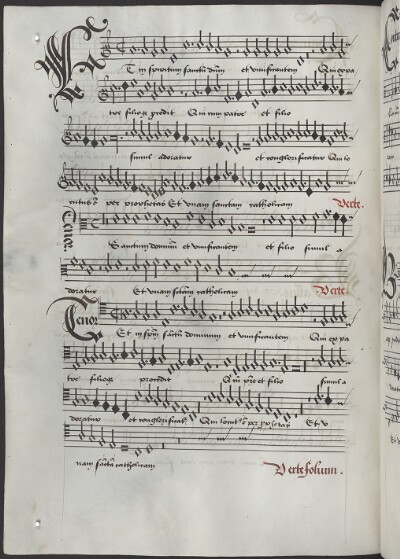 Et in spiritum sanctū dn̄m et vivificantem Qui ex pa
tre filioqꝫ procedit Qui cum patre et filio
simul adoratur et conglorificatur Qui lo
cutus ē per prophetas Et unam sanctam catholicam Verte.
Sanctum dominū et vivificantem et filio simul a
doratur Et unam sctām catholicam Verte.
Tenor Et in spm̄ sanctū dominum et vivificantem Qui ex pa
tre filioqꝫ procedit Qui cū pr̄e et filio simul a
doratur et conglorificat̄ Qui locut⁹ ē per prophetas Et u
nam sanctā catholicam Verte folium.